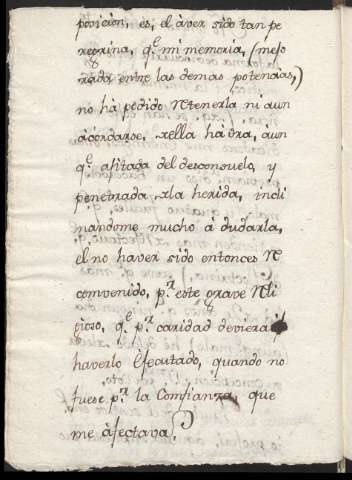 posicion, es, el àver sido tan pe
regrina, q.e mi memoria, (mejo
rada entre las demas potencias,)
no hà podido Retenerla ni aun
acordarse, de ella hà ora, aun
q.e afijada del desconsuelo, y
penetrada de la herida, incli
nandome mucho à dudarla,
el no haver sido entonces Re
comvenido, p.r este grave Reli
gioso, q.e p.r caridad deviera
haverlo Efecutado, quando no
fuese p.r la Comfianza, que
me àfectava.